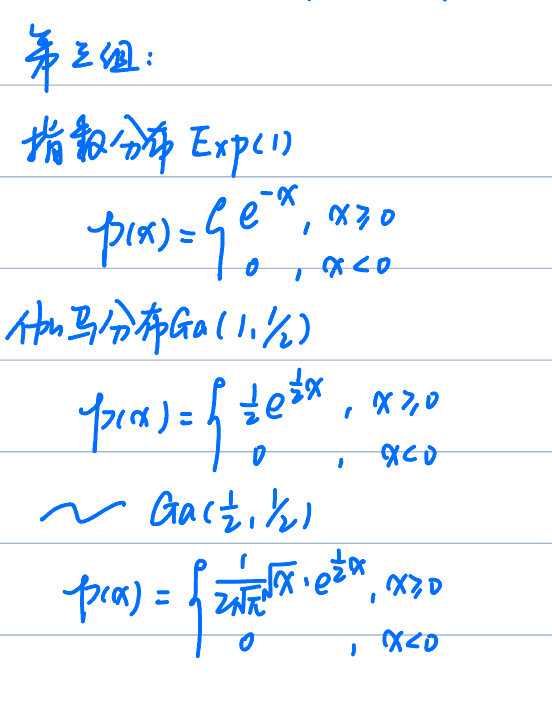 第三组:
指数分布 Exp(1)
p(x) = { e^{-x}, x≥0
0, x<0
伽马分布Ga(1, 1/2)
p(x) = { 1/2 e^{1/2 x}, x≥0
0, x<0
～ Ga(1/2, 1/2)
p(x) = { 1/(2√π) √x · e^{1/2 x}, x≥0
0, x<0